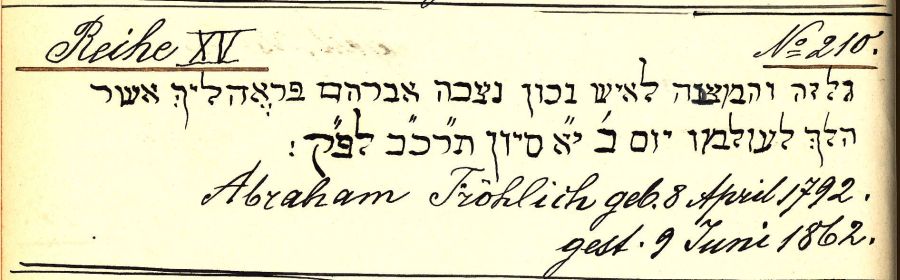 Reihe XV
No 210.
גל זה והמצבה לאיש נכון נצבה אברהם פראָהליך אשר
הלך לעולמו יום ב׳ י״א סיון תרכ״ב לפ״ק :
Abraham Fröhlich geb. 8 April 1792.
gest. 9 Juni 1862.